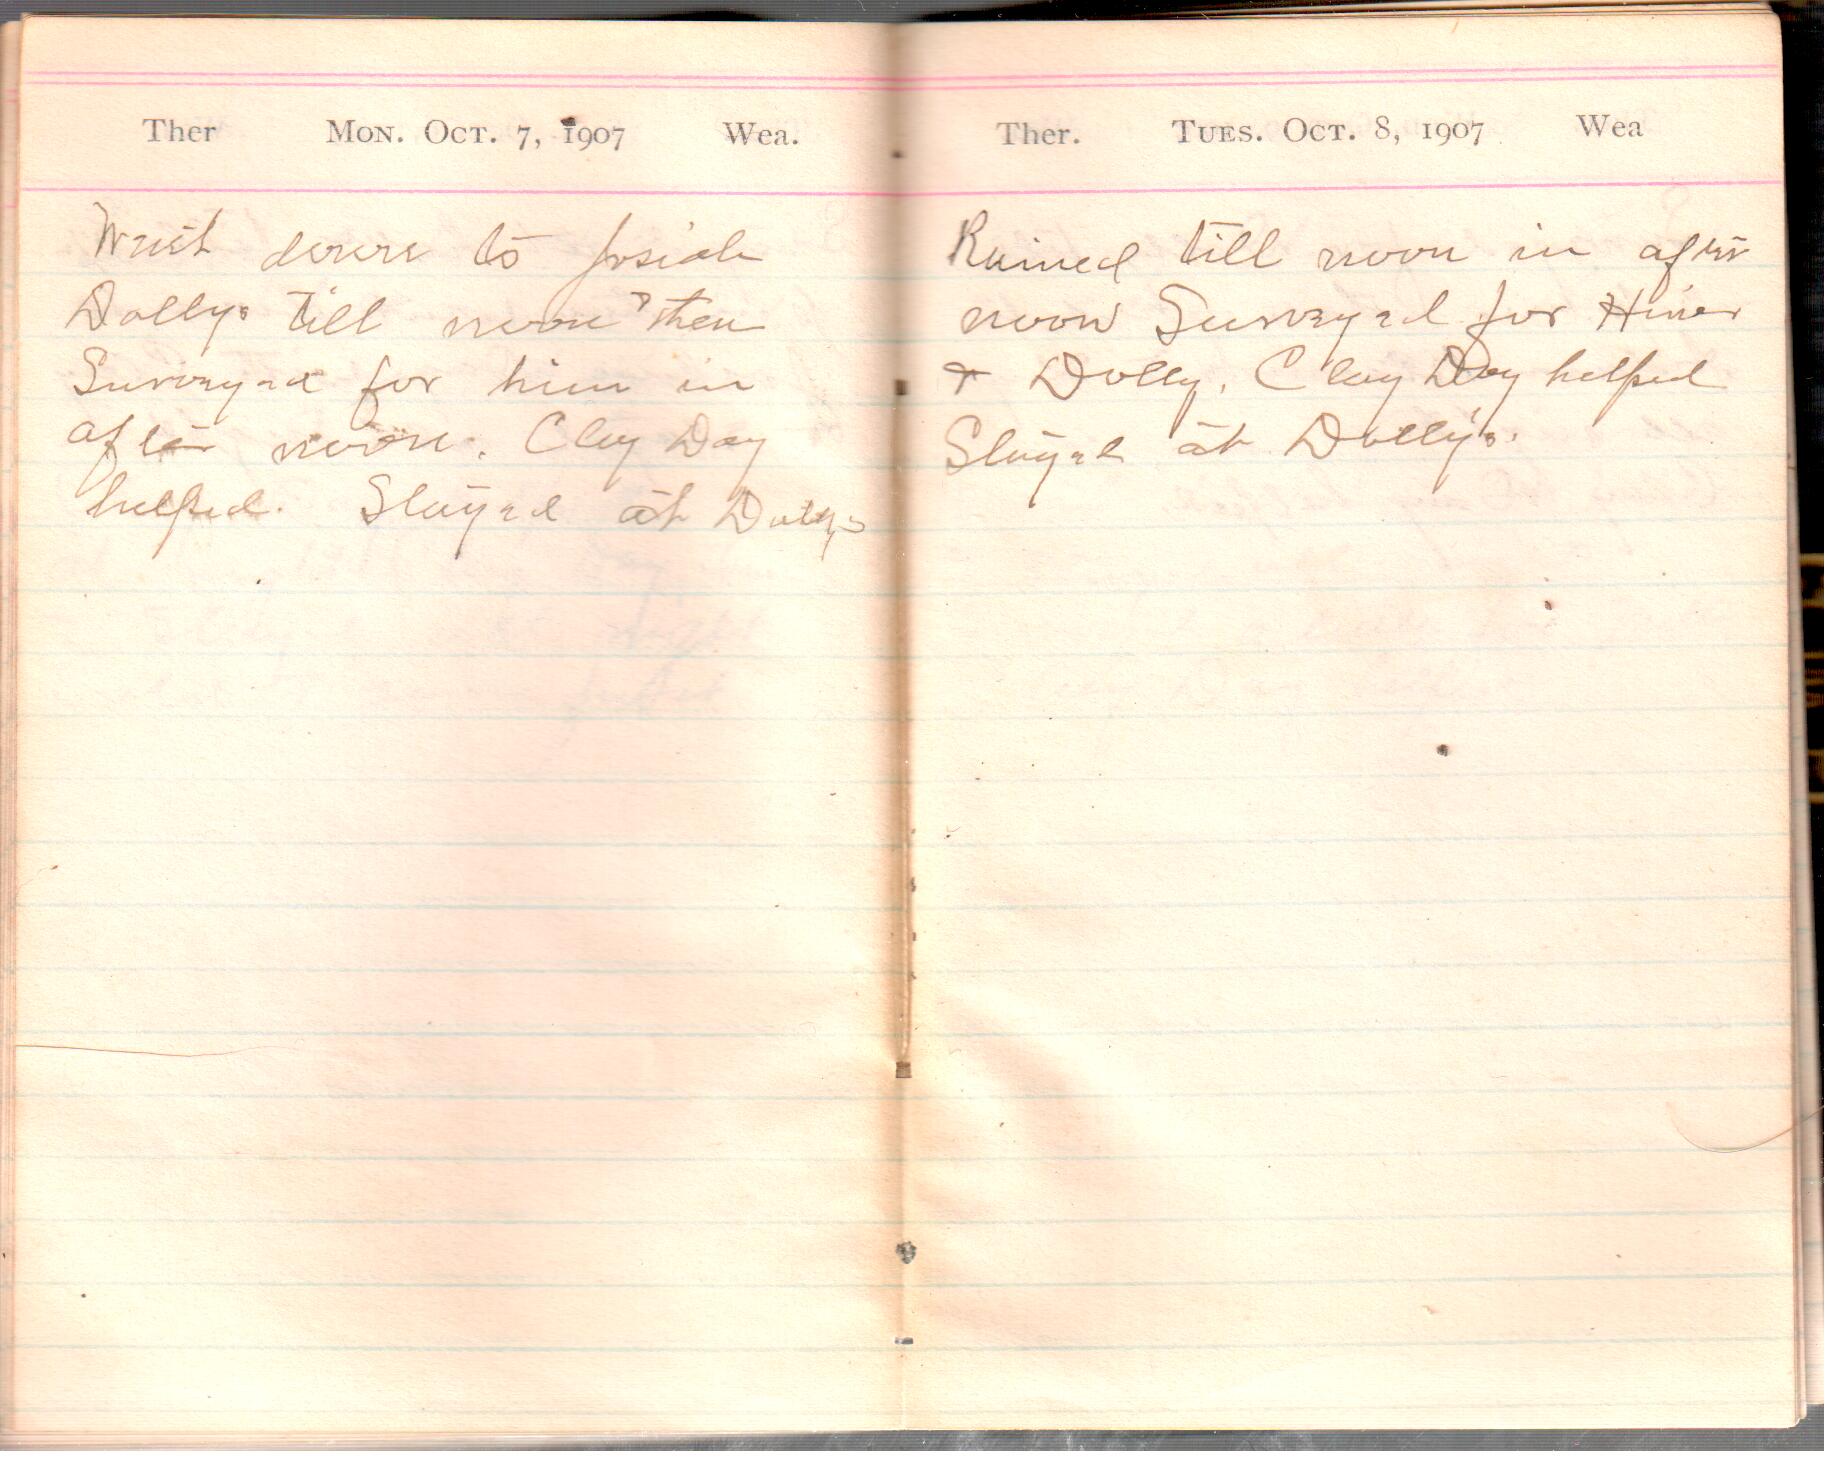 Ther Mon. Oct. 7, 1907 Wea.
Went down to Josiah
Dollys till noon then
Surveyed for him in
after noon. Clay Day
helped. Stayed at Dollys
Ther. Tues. Oct. 8, 1907 Wea
Rained till noon in after
noon Surveyed for Hiner
& Dolly. Clay Day helped
Stayed at Dolly's.